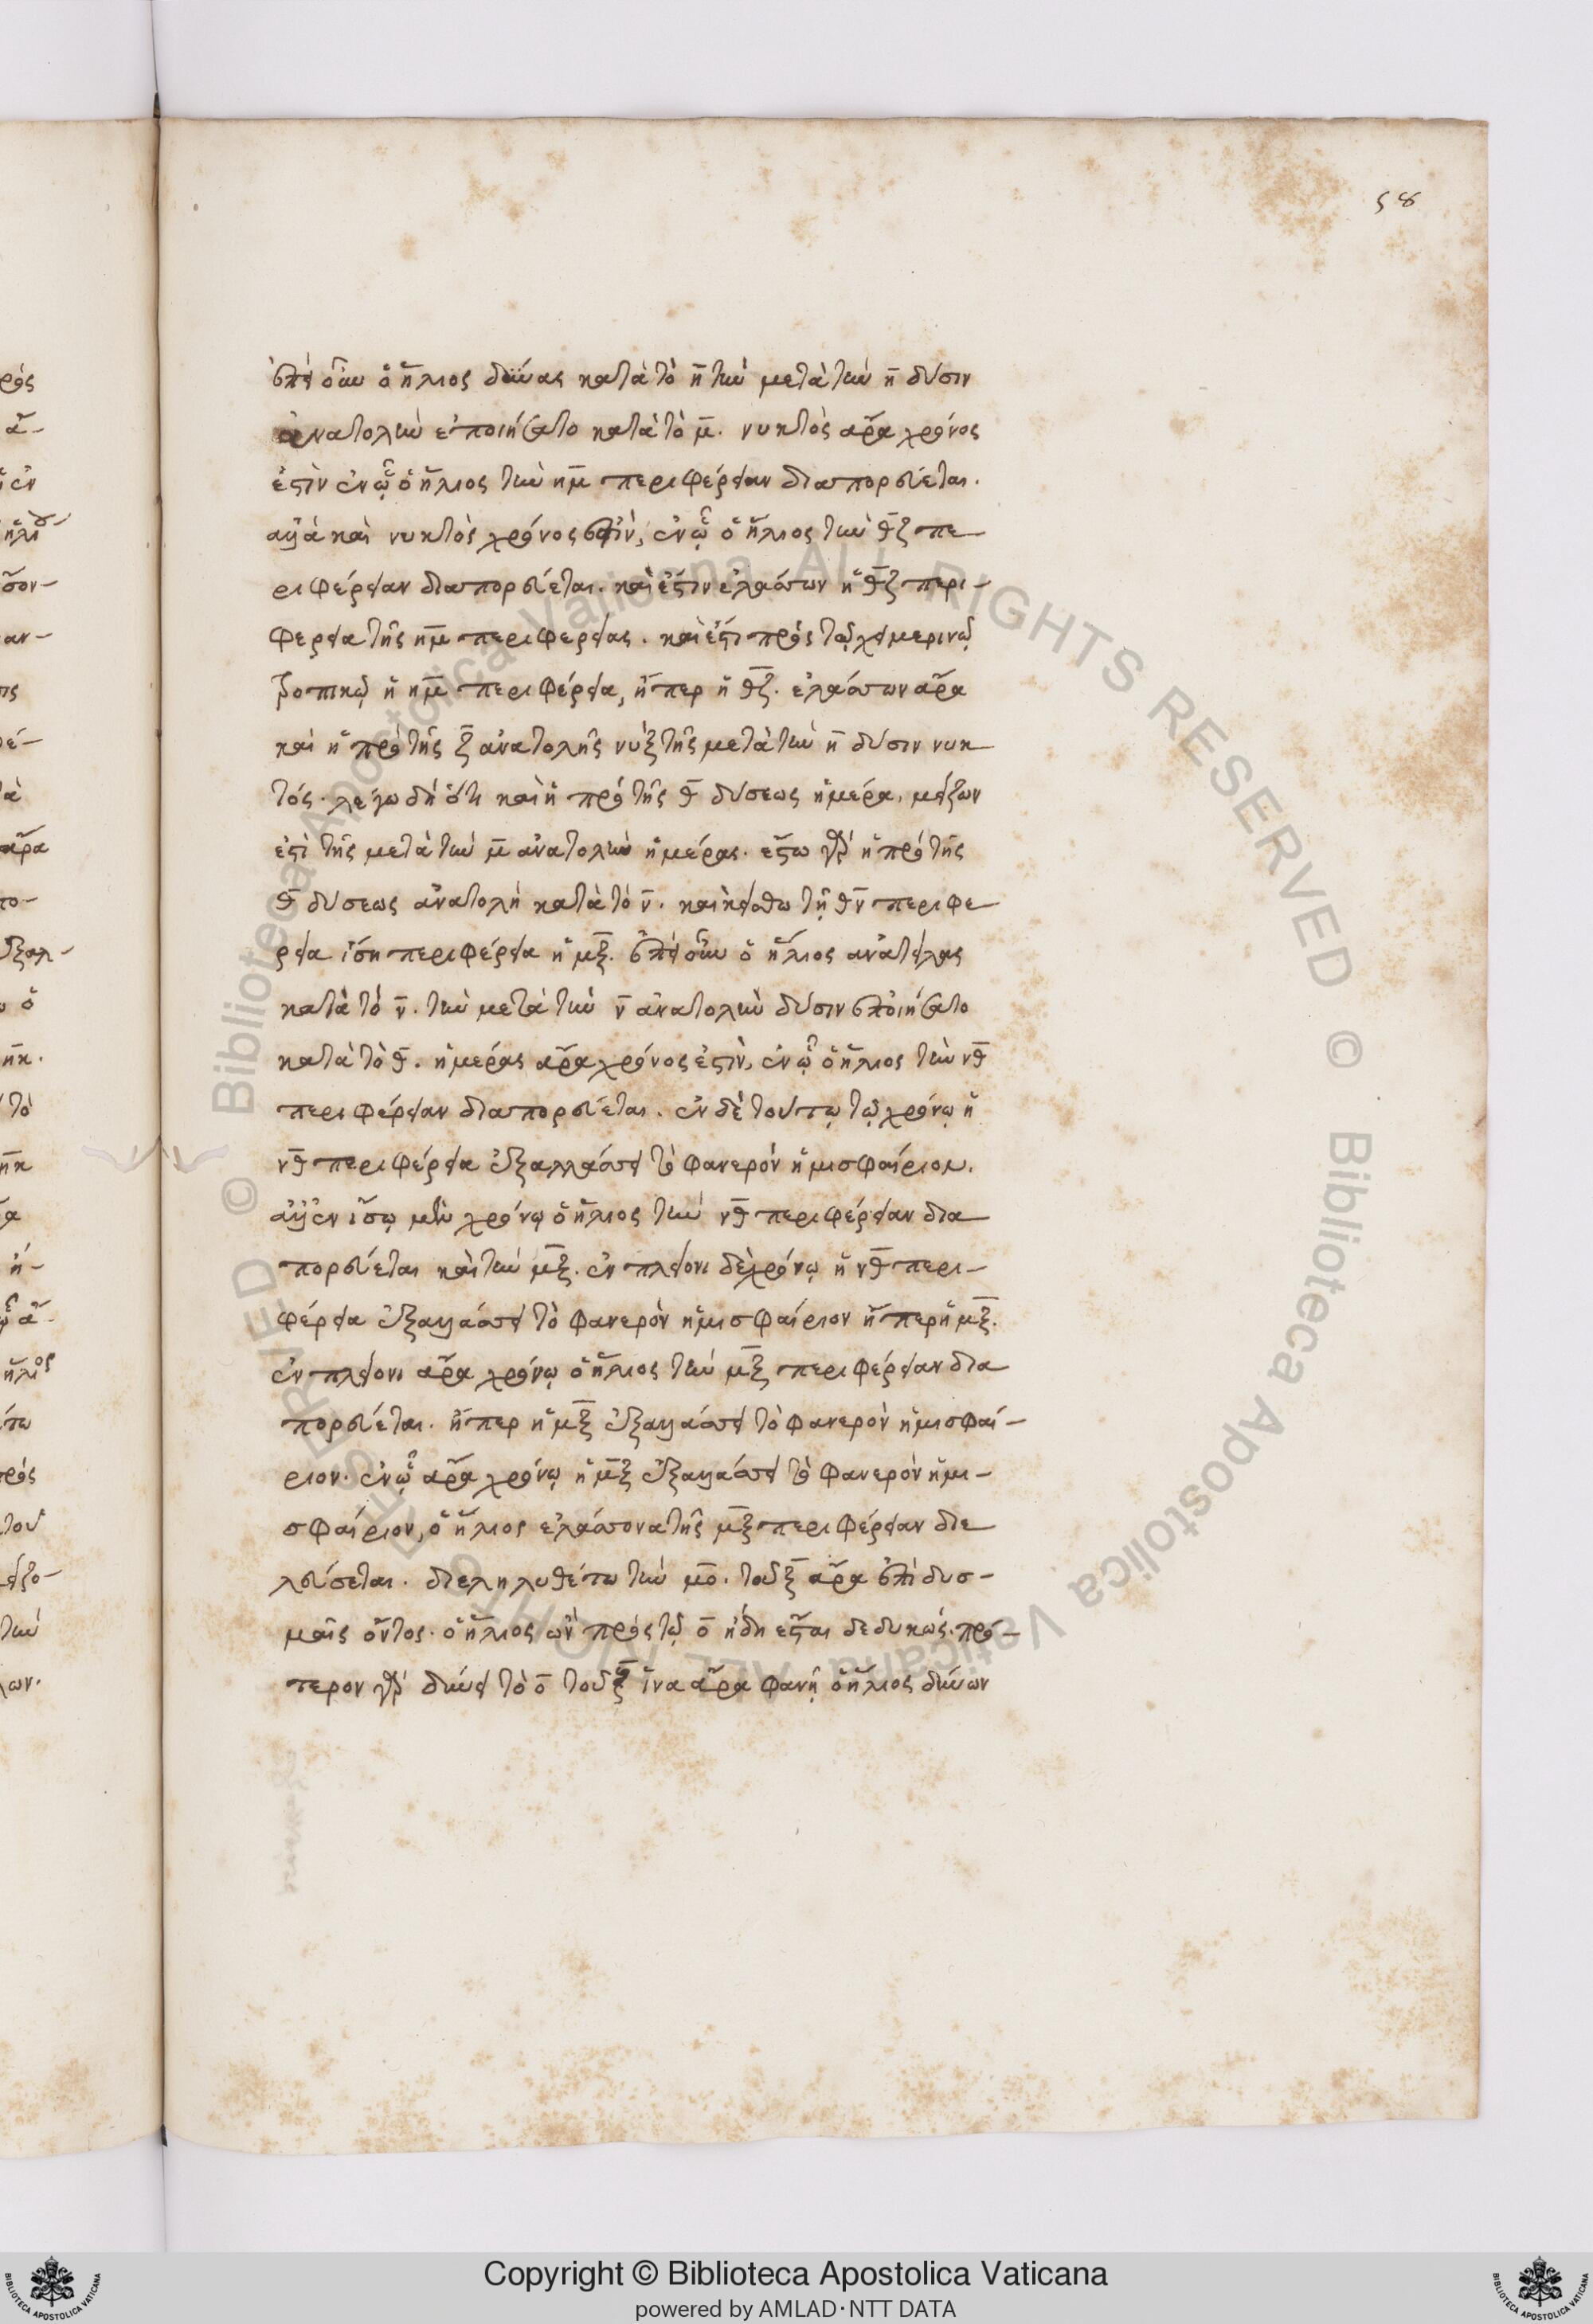 58
ἐπεὶ οὖν ὁ ἥλιος δύνας κατὰ τὸ η̄ τὴν μετὰ τὴν η̄ δύσιν
ἀνατολὴν ἐποιήσατο κατὰ τὸ μ̄. νυκτὸς ἄρα χρόνος
ἐστὶν ἐν ᾧ ὁ ἥλιος τὴν η̄μ̄ περιφέρειαν διαπορεύεται.
ἀλλὰ καὶ νυκτὸς χρόνος ἐστὶν, ἐν ᾧ ὁ ἥλιος τὴν θ̄ζ̄ πε
ριφέρειαν διαπορεύεται. καὶ ἔστιν ἐλάσσων ἡ θ̄ζ̄ περι-
φέρεια τῆς η̄μ̄ περιφερείας. καὶ ἔστι πρὸς τῷ χειμερινῷ
τροπικῷ ἡ η̄μ̄ περιφέρεια, ἤπερ ἡ θ̄ζ̄. ἐλάσσων ἄρα
καὶ ἡ πρὸ τῆς ζ̄ ἀνατολῆς νὺξ τῆς μετὰ τὴν η̄ δύσιν νυκ
τός. λέγω δὴ ὅτι καὶ ἡ πρὸ τῆς θ̄ δύσεως ἡμέρα, μείζων
ἐστὶ τῆς μετὰ τὴν μ̄ ἀνατολὴν ἡμέρας. ἔστω γὰρ ἡ πρὸ τῆς
θ̄ δύσεως ἀνατολὴ κατὰ τὸ ν̄. καὶ κείσθω τῇ θ̄ν̄ περιφε
ρεία ἴση περιφέρεια ἡ μ̄ξ̄. ἐπεὶ οὖν ὁ ἥλιος ἀνατείλας
κατὰ τὸ ν̄. τὴν μετὰ τὴν ν̄ ἀνατολὴν δύσιν ἐποιήσατο
κατὰ τὸ θ̄. ἡμέρας ἄρα χρόνος ἐστὶν, ἐν ᾧ ὁ ἥλιος τὴν ν̄θ̄
περιφέρειαν διαπορεύεται. ἐν δὲ τούτῳ τῷ χρόνῳ ἡ
ν̄θ̄ περιφέρεια ἐξαλλάσσει τὸ φανερὸν ἡμισφαίριον.
ἀλλ' ἐν ἴσῳ μὲν χρόνῳ ὁ ἥλιος τὴν ν̄θ̄ περιφέρειαν δια
πορεύεται καὶ τὴν μ̄ξ̄. ἐν πλείονι δὲ χρόνῳ ἡ ν̄θ̄ περι-
φέρεια ἐξαλλάσσει τὸ φανερὸν ἡμισφαίριον ἤπερ ἡ μ̄ξ̄.
ἐν πλείονι ἄρα χρόνῳ ὁ ἥλιος τὴν μ̄ξ̄ περιφέρειαν δια
πορεύεται. ἤπερ ἡ μ̄ξ̄ ἐξαλλάσσει τὸ φανερὸν ἡμισφαί-
ριον. ἐν ᾧ ἄρα χρόνῳ ἡ μ̄ξ̄ ἐξαλλάσσει τὸ φανερὸν ἡμι-
σφαίριον, ὁ ἥλιος ἐλάσσονα τῆς μ̄ξ̄ περιφέρειαν διε
λεύσεται. διεληλυθέτω τὴν μ̄ο̄. τοῦ ξ̄ ἄρα ἐπὶ δυσ-
μαῖς ὄντος. ὁ ἥλιος ὢν πρὸς τῷ ο̄ ἤδη ἔσται δεδυκώς. πρό-
τερον γὰρ δύνει τὸ ο̄ τοῦ ξ̄ ἵνα ἄρα φανῇ ὁ ἥλιος δύνων